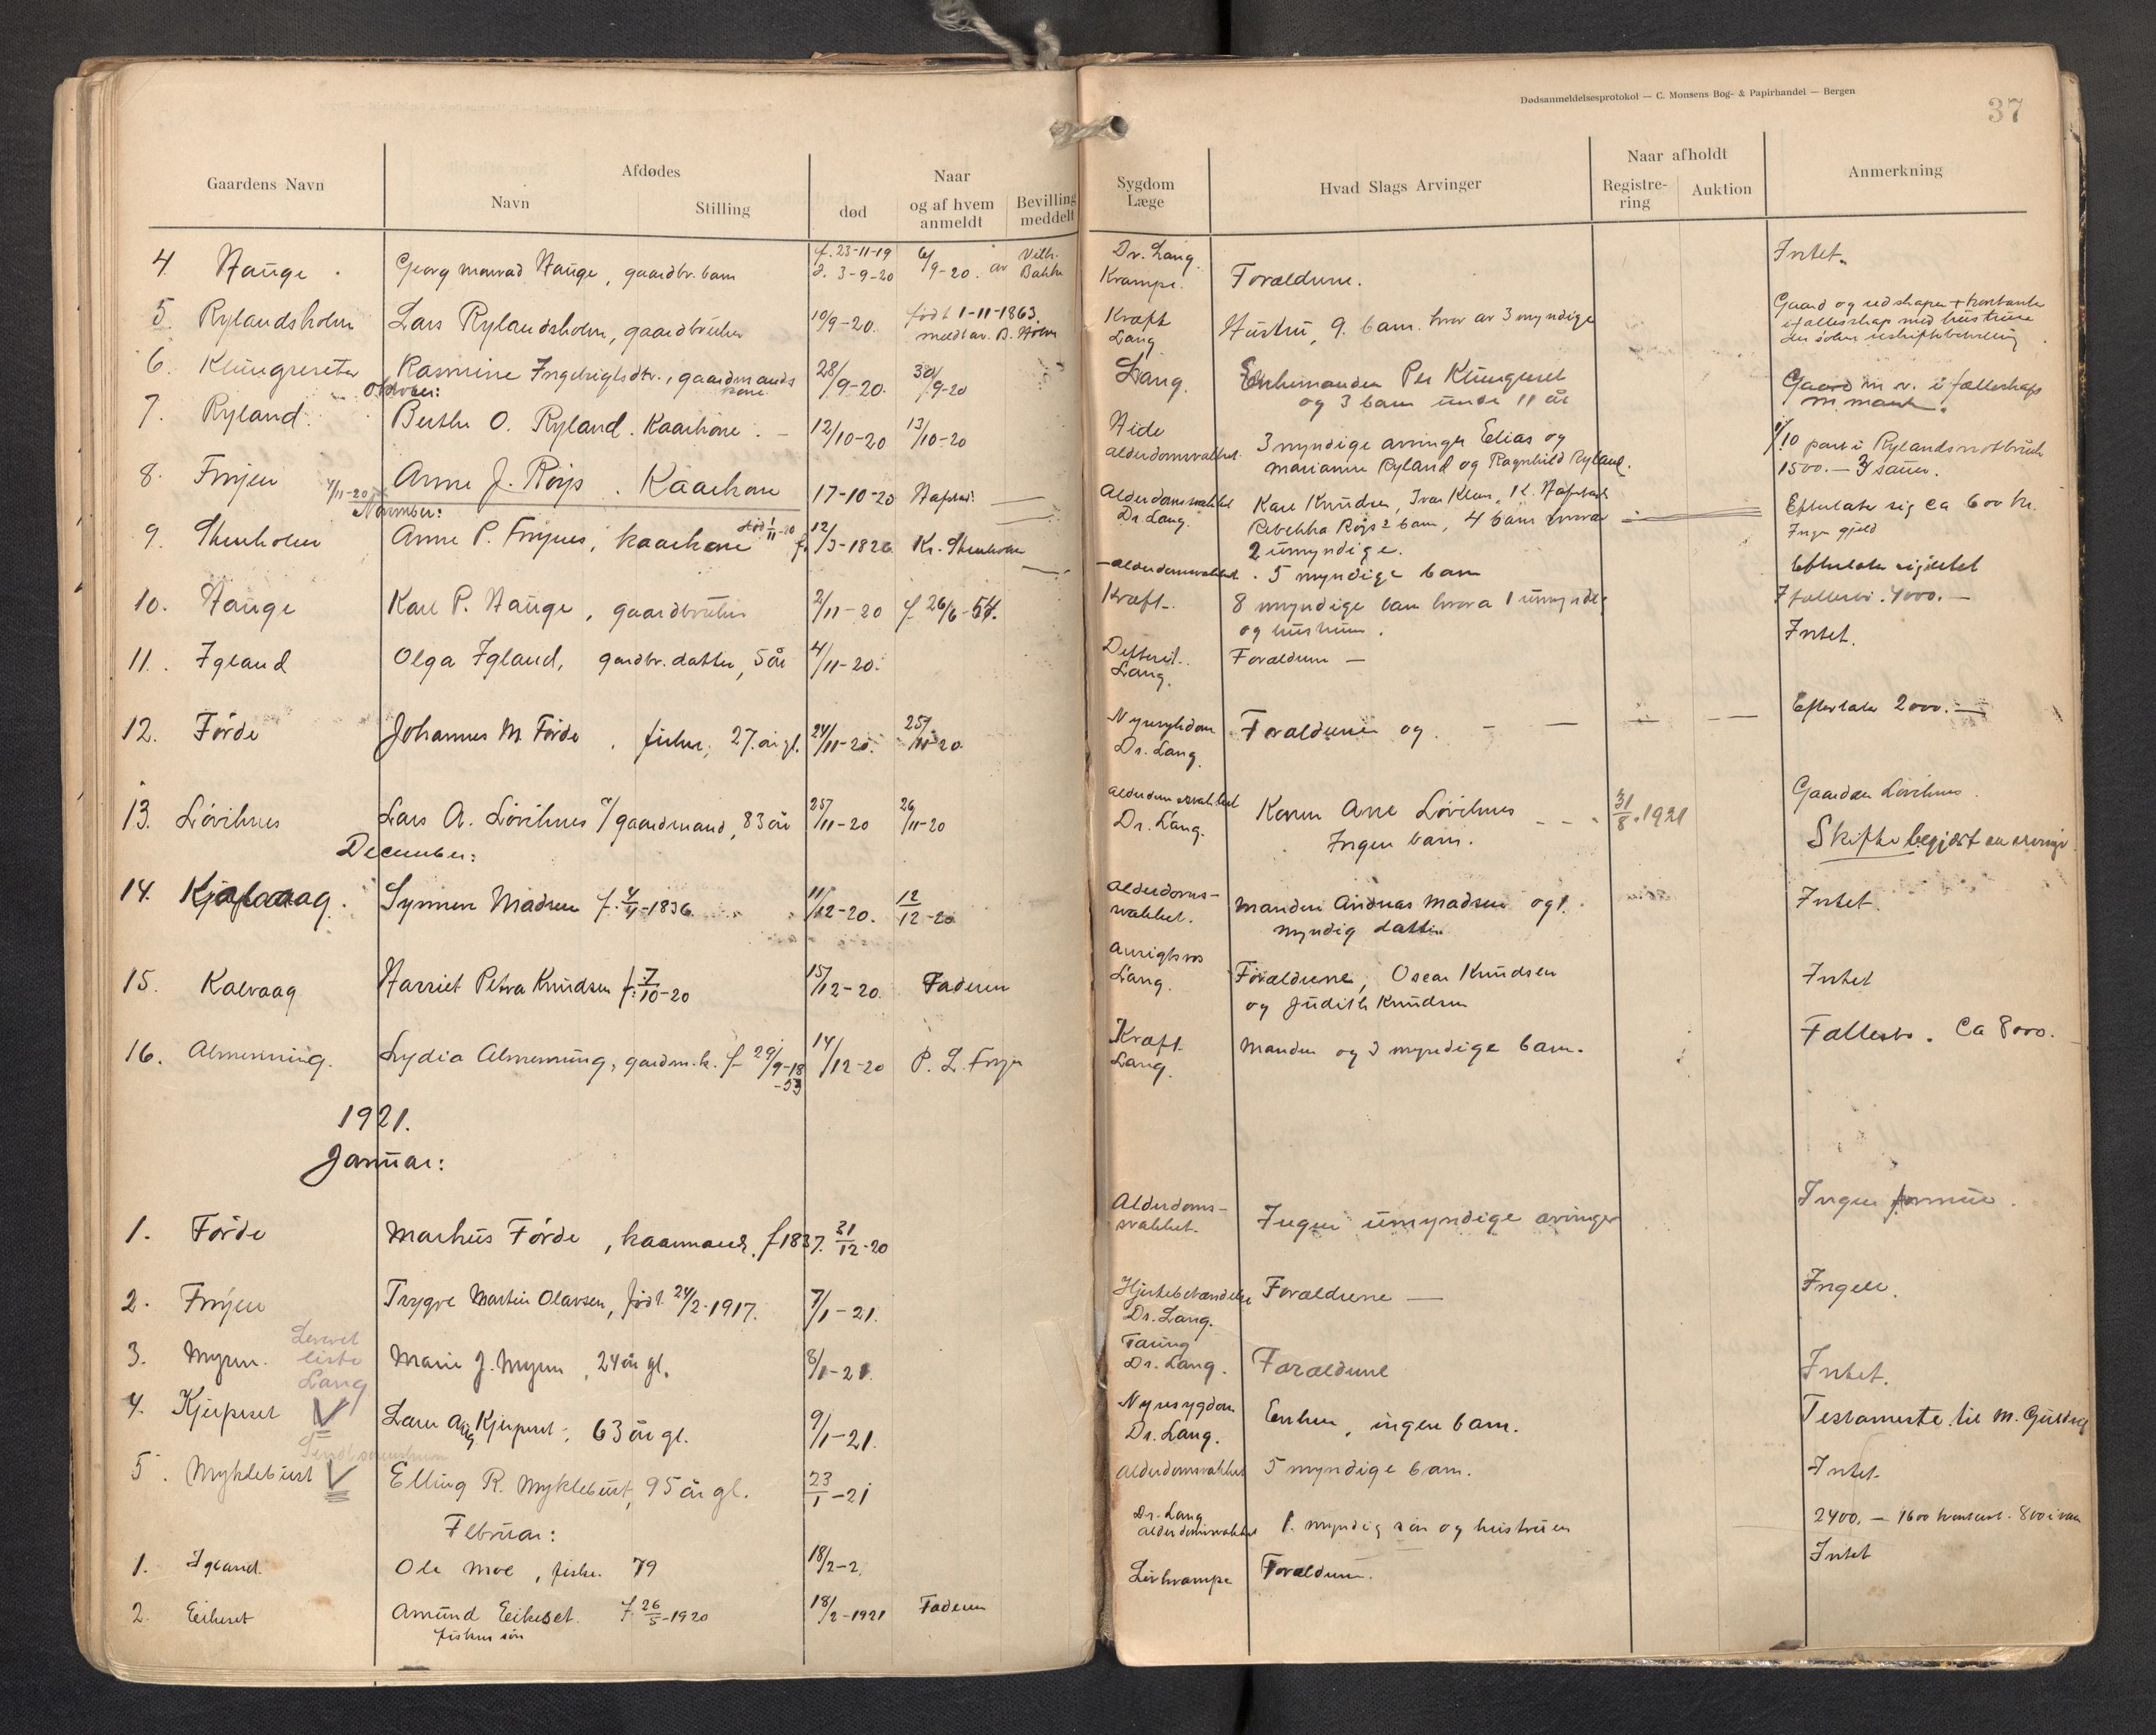 Dødsanmeldelsesprotokol — C. Monsens Bog- & Papirhandel — Bergen
37
Gaardens Navn
Afdødes
Navn
Stilling
død
Naar
og af hvem
anmeldt
Bevilling
meddelt
Sygdom
Læge
Hvad Slags Arvinger
Naar afholdt
Registre-
ring
Auktion
Anmerkning
4. Hauge. Georg Hauge, gaardbr. barn f. 23-11-19 d. 3-9-20 6/9-20. av Vilh. Bakke Dr. Lang. Krampe. Forældrene. Intet.
5. Rylandsholm Lars Rylandsholm, gaardbruker 10/9-20. født 1-11-1863. meldt av B. Holm Kræft Lang Hustru, 9 barn hvor av 3 myndige Gaard og redskaper + kontanter i fællesskap med hustruen
6. Klungreset Rasmine Ingebrigtsdtr., gaardmands kone 28/9-20. 30/9-20 Lang. Enkemanden Per Klungreset og 3 barn under 11 år Gaard m. v. i fællesskap m. mand.
Oktober:
7. Ryland. Berthe O. Ryland. Kaarkone. 12/10-20 13/10-20 Alderdomsvakhet. 3 myndige arvinger Elias og Marianne Ryland og Ragnhild Ryland. 1/10 part i Rylandsnotbruk 1500.— 3 sauer.
8. Frøyen Anne J. Røys. Kaarkone 17-10-20 Alderdomsvakhet Dr. Lang. Kare Knudsen, Ivar Rebekka Røys 2 barn, 4 barn hvorav 2 umyndige. Efterlater sig ca 600 kr. Ingen gjeld
4/11-20 November:
9. Stenholm Anne P. Frøynes, kaarkone død 1/11-20 f. 12/3-1826 Kr. Stenholm Alderdomsvakhet. 5 myndige barn Efterlater sig intet
10. Hauge Kare P. Hauge, gaardbruker 2/11-20 f 26/6-54. Kræft. 8 myndige barn hvorav 1 umyndig og hustruen. I fællesbo. 4000.—
11. Igland Olga Igland, gardbr. datter, 5 år 4/11-20. Difterit. Lang. Forældrene — Intet.
12. Førde Johannes M. Førde, fisker, 27. år gl. 24/11-20. 25/11-20 Nyresykdom Dr. Lang. Forældrene og. Efterlater 2000.—
13. Løvihnes Lars A. Løvihnes gaardmand, 83 år 25/11-20 26/11-20 Alderdomsvakhet Dr. Lang. Konen Anne Løvihnes Ingen barn. 31/8.1921 Gaarden Løvihnes. Skifte begjært av arvinger
December:
14. Kjølvaag. Synneve Madsen f. 4/11-1836 11/12-20. 12/12-20 Alderdoms- svakhet. Manden Andreas Madsen og 1. myndig datter Intet.
15. Kalvaag Harriet Petra Knudsen f. 7/10-20 15/12-20. Faderen Lang. Forældrene, Oscar Knudsen og Judith Knudsen Intet
16. Almenning. Lydia Almenning, gardm.k. f 29/9-18-53 14/12-20 P. L. Frøyen Kræft. Lang. Manden og 3 myndige barn. Fællesbo. Ca 8000.
1921.
Januar:
1. Førde Markus Førde, kaarmand, f 1837. 31/12-20 Alderdoms- svakhet. Ingen umyndige arvinger Ingen formue.
2. Frøyen Trygve Martin Olavsen, født 24/2-1917. 7/1-21. Hjertebetændelse Dr. Lang. Forældrene — Ingen.
Levert liste Lang
3. Myren. Marie J. Myren, 24 år gl. 8/1-21. Tæring Dr. Lang. Forældrene Intet.
4. Kjerpeset Kjerpeset, 63 år gl. 9/1-21. Nyresygdom Dr. Lang. Enken, ingen barn. Testamente til M.
5. Myklebust Elling R. Myklebust, 95 år gl. 23/1-21 Alderdomsvakhet 5 myndige barn. Intet.
Februar:
1. Igland. Ole Moe, fisker 79 18/2-2. Dr. Lang Alderdomsvakhet 1. myndig søn og hustruen 2400.— 1600 kontant. 800 i
2. Eikeset Amund Eikeset. f. 26/5-1920 fiskers søn 18/2-1921 Faderen Forældrene. Intet